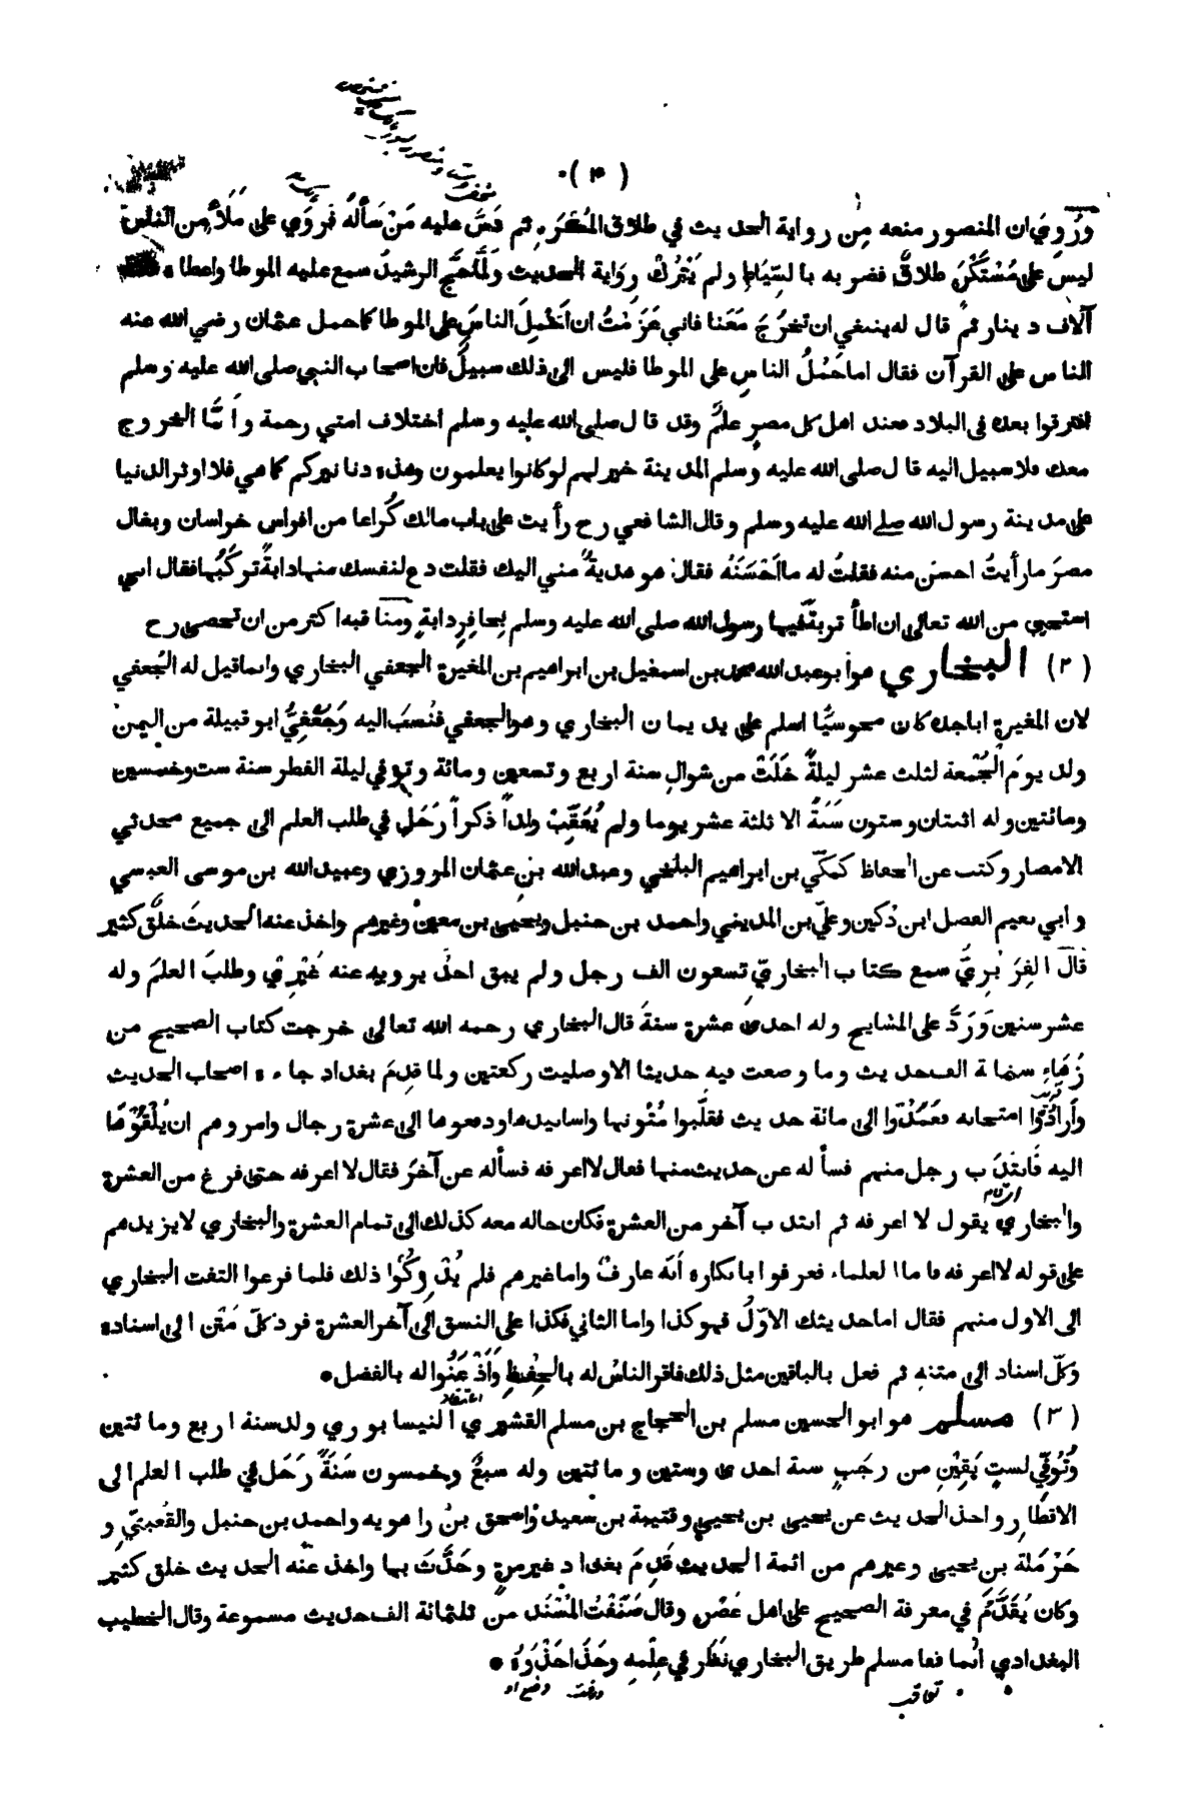 (٣)
ورُوِيَ ان المنصور منعه مِن رواية الحديث في طلاق المُكْرَهِ ثم دَسَّ عليه مَنْ سَألهُ فروَى على مَلَأٍ من الناس
ليس على مُسْتَكْرَهٍ طلاقٌ فضربه بالسِّيَاطِ ولم يَتْرُكْ رِوَاية الحديث ولَمَّا حَجَّ الرشيدُ سمع عليه الموطا واعطاه
آلاف دينار ثم قال له ينبغي ان تخرُجَ مَعَنا فاني عَزَمْتُ ان اَحْمِلَ الناسَ على الموطا كما حمل عثمان رضي الله عنه
الناس على القرآن فقال اما حَمْلُ الناسِ على الموطا فليس الى ذلك سبيلٌ فان اصحاب النبي صلى الله عليه وسلم
افترقوا بعده في البلاد فعند اهل كل مصرٍ علمٌ وقد قال صلى الله عليه وسلم اختلاف امتي رحمة واَمَّا الخروج
معك فلا سبيل اليه قال صلى الله عليه وسلم المدينة خير لهم لو كانوا يعلمون وهذه دنانيركم كما هي فلا اوثر الدنيا
على مدينة رسول الله صلى الله عليه وسلم وقال الشافعي رح رأيت على باب مالك كُراعا من افراس خراسان وبغال
مصرَ ما رأيتُ احسن منه فقلتُ له ما اَحْسَنَهُ فقال هو هديةٌ مني اليك فقلت دع لنفسك منها دابةً تركَبُها فقال اني
استحيي من الله تعالى ان اطأَ تربةً فيها رسول الله صلى الله عليه وسلم بِحافِرِ دابةٍ ومنَاقبه اكثر من ان تحصى رح
(٢) البخاري هو ابو عبد الله محمد بن اسمعيل بن ابراهيم بن المغيرة الجعفي البخاري وانما قيل له الجُعفي
لان المغيرة ابا جده كان مجوسيًّا اسلم على يد يمان البخاري وهو الجعفي فنُسبَ اليه وَجُعْفِيٌّ ابو قبيلة من اليمن
ولد يومَ الجُمْعة لثلث عشر ليلةً خَلَتْ من شوالِ سنة اربع وتسعين ومائة وتوفي ليلة الفطر سنة ست وخمسين
ومائتين وله اثنتان وستون سَنَةً الا ثلثة عشر يوما ولم يُعَقِّبْ ولداً ذكراً رَحَلَ في طلب العلم الى جميع محدثي
الامصار وكتب عن الحفاظ كمكّي بن ابراهيم البلخي وعبد الله بن عثمان المروزي وعبيد الله بن موسى العبسي
وابي نعيم الفضل ابن دُكين وعليّ بن المديني واحمد بن حنبل ويحيى بن معين وغيرهم واخذ عنه الحديثَ خلقٌ كثير
قال الفِرَبْرِيُّ سمع كتاب البخاريّ تسعون الف رجل ولم يبق احدٌ يرويه عنه غَيْرِي وطلبَ العلمَ وله
عشر سنين وَرَدَّ على المشايخ وله احدى عشرة سنةً قال البخاري رحمه الله تعالى خرجت كتاب الصحيح من
زُهَاءِ ستمائة الف حديث وما وضعت فيه حديثا الا وصليت ركعتين ولما قدِمَ بغداد جاءه اصحاب الحديث
وأرادُوا امتحانه فعَمَدُوا الى مائة حديث فقَلَّبوا مُتُونها واسانيدها ودفعوها الى عشرة رجال وامروهم ان يُلْقُوْهَا
اليه فَانتَدَب رجل منهم فسأله عن حديث منها فقال لا اعرفه فسأله عن آخرَ فقال لا اعرفه حتى فرغ من العشرة
والبخاري يقول لا اعرفه ثم انتدب آخر من العشرة فكان حاله معه كذلك الى تمام العشرة والبخاري لا يزيدهم
على قوله لا اعرفه فاما العلماء فعرفوا بانكاره انّه عارفٌ واما غيرهم فلم يُدْرِكُوا ذلك فلما فرغوا التفت البخاري
الى الاول منهم فقال اما حديثك الاوّلُ فهو كذا واما الثاني فكذا على النسق الى آخر العشرة فرد كلّ مَتْنٍ الى اسناده
وكلّ اسناد الى متنهِ ثم فعل بالباقين مثل ذلك فاقر الناسُ له بالحِفْظِ وَاَذْعَنُوا له بالفضل •
(٣) مسلم هو ابو الحسين مسلم بن الحجاج بن مسلم القشيري النيسابوري ولد سنة اربع ومائتين
وتُوُفِّيَ لستٍ بَقِيْنِ من رجَبٍ سنة احدى وستين ومائتين وله سبعٌ وخمسون سَنَةً رَحَل في طلب العلم الى
الاقطارِ واخذ الحديث عن يحيى بن يحيى وقتيبة بن سعيد واسحق بن راهويه واحمد بن حنبل والقعبنيّ و
حَرْمَلة بن يحيى وغيرهم من ائمة الحديث قَدِمَ بغداد غير مرةٍ وحَدَّثَ بها واخذ عنْه الحديث خلق كثير
وكان يُقَدَّمُ في معرفة الصحيح على اهل عَصْرِهِ وقال صَنَّفْتُ المُسْنَد من ثلثمائة الف حديث مسموعة وقال الخطيب
البغدادي انّما قفا مسلم طريق البخاري نَظَر في عِلْمهِ وحَذَا حَذْوَهُ •